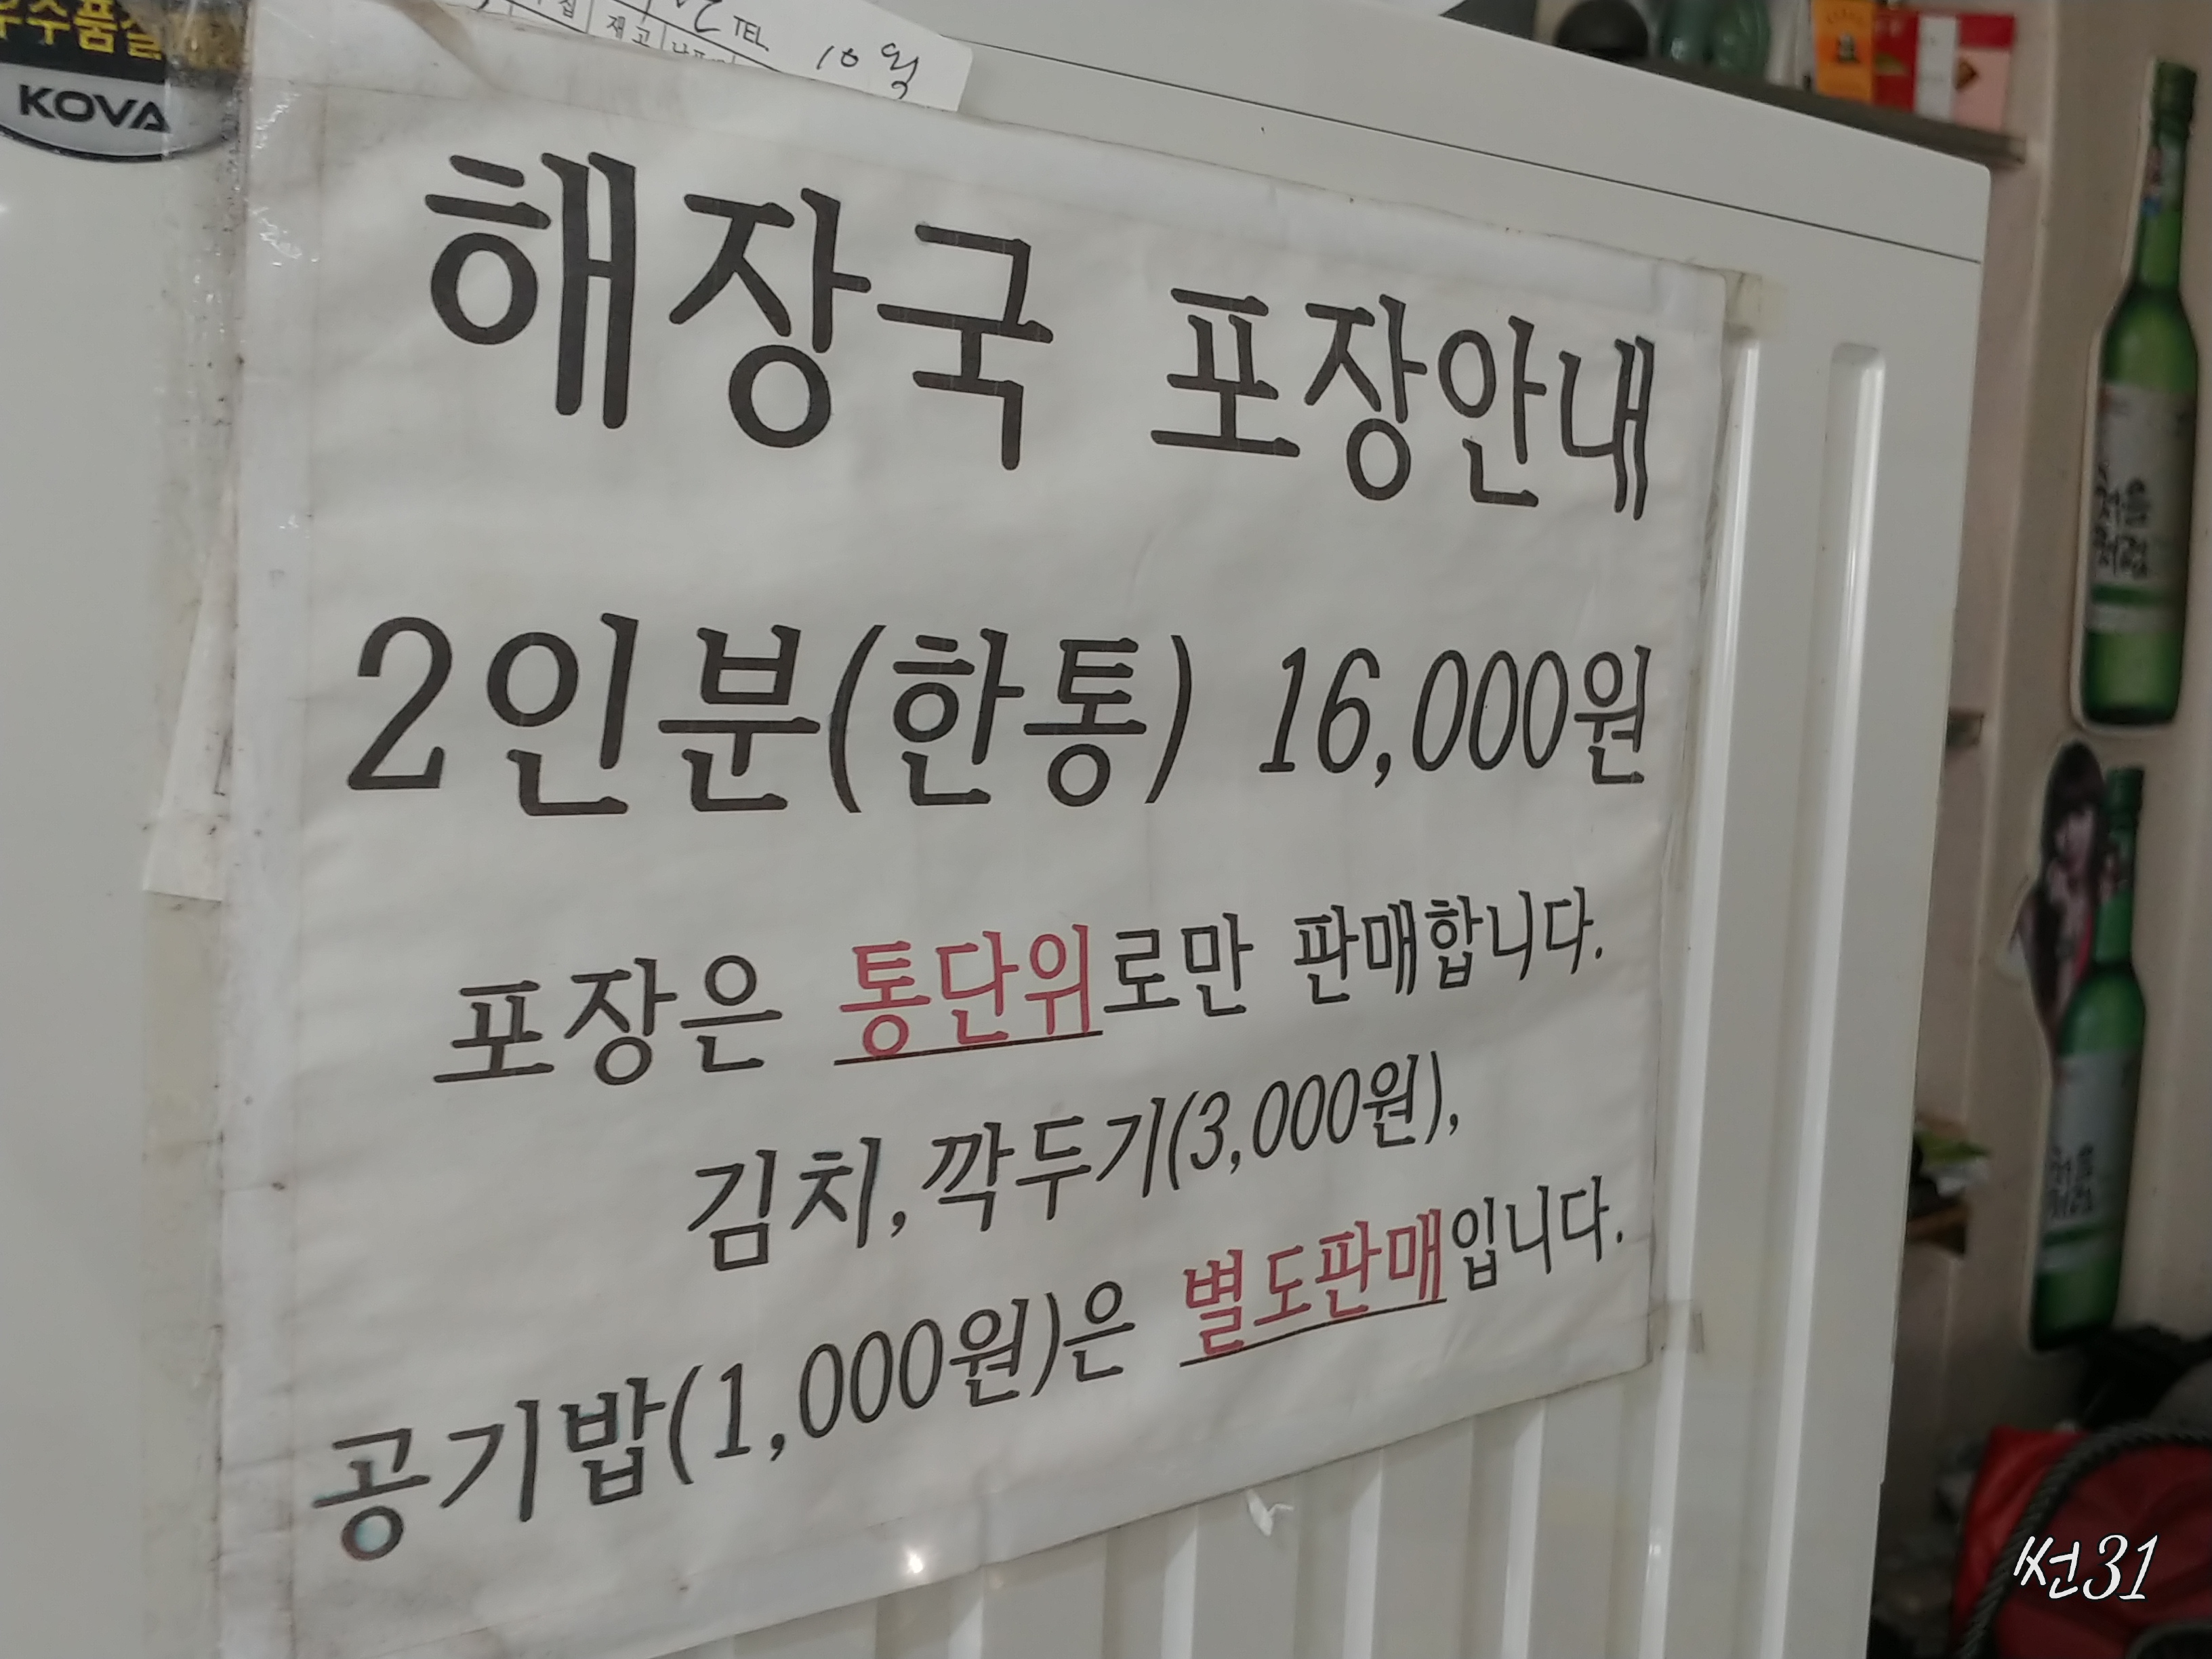 KOVA
재고
TEL.
10월
해장국 포장안내
2인분(한통) 16,000원
포장은 통단위로만 판매합니다.
김치,깍두기(3,000원),
공기밥(1,000원)은 별도판매입니다.
처음
처럼
처음
처럼
썬31